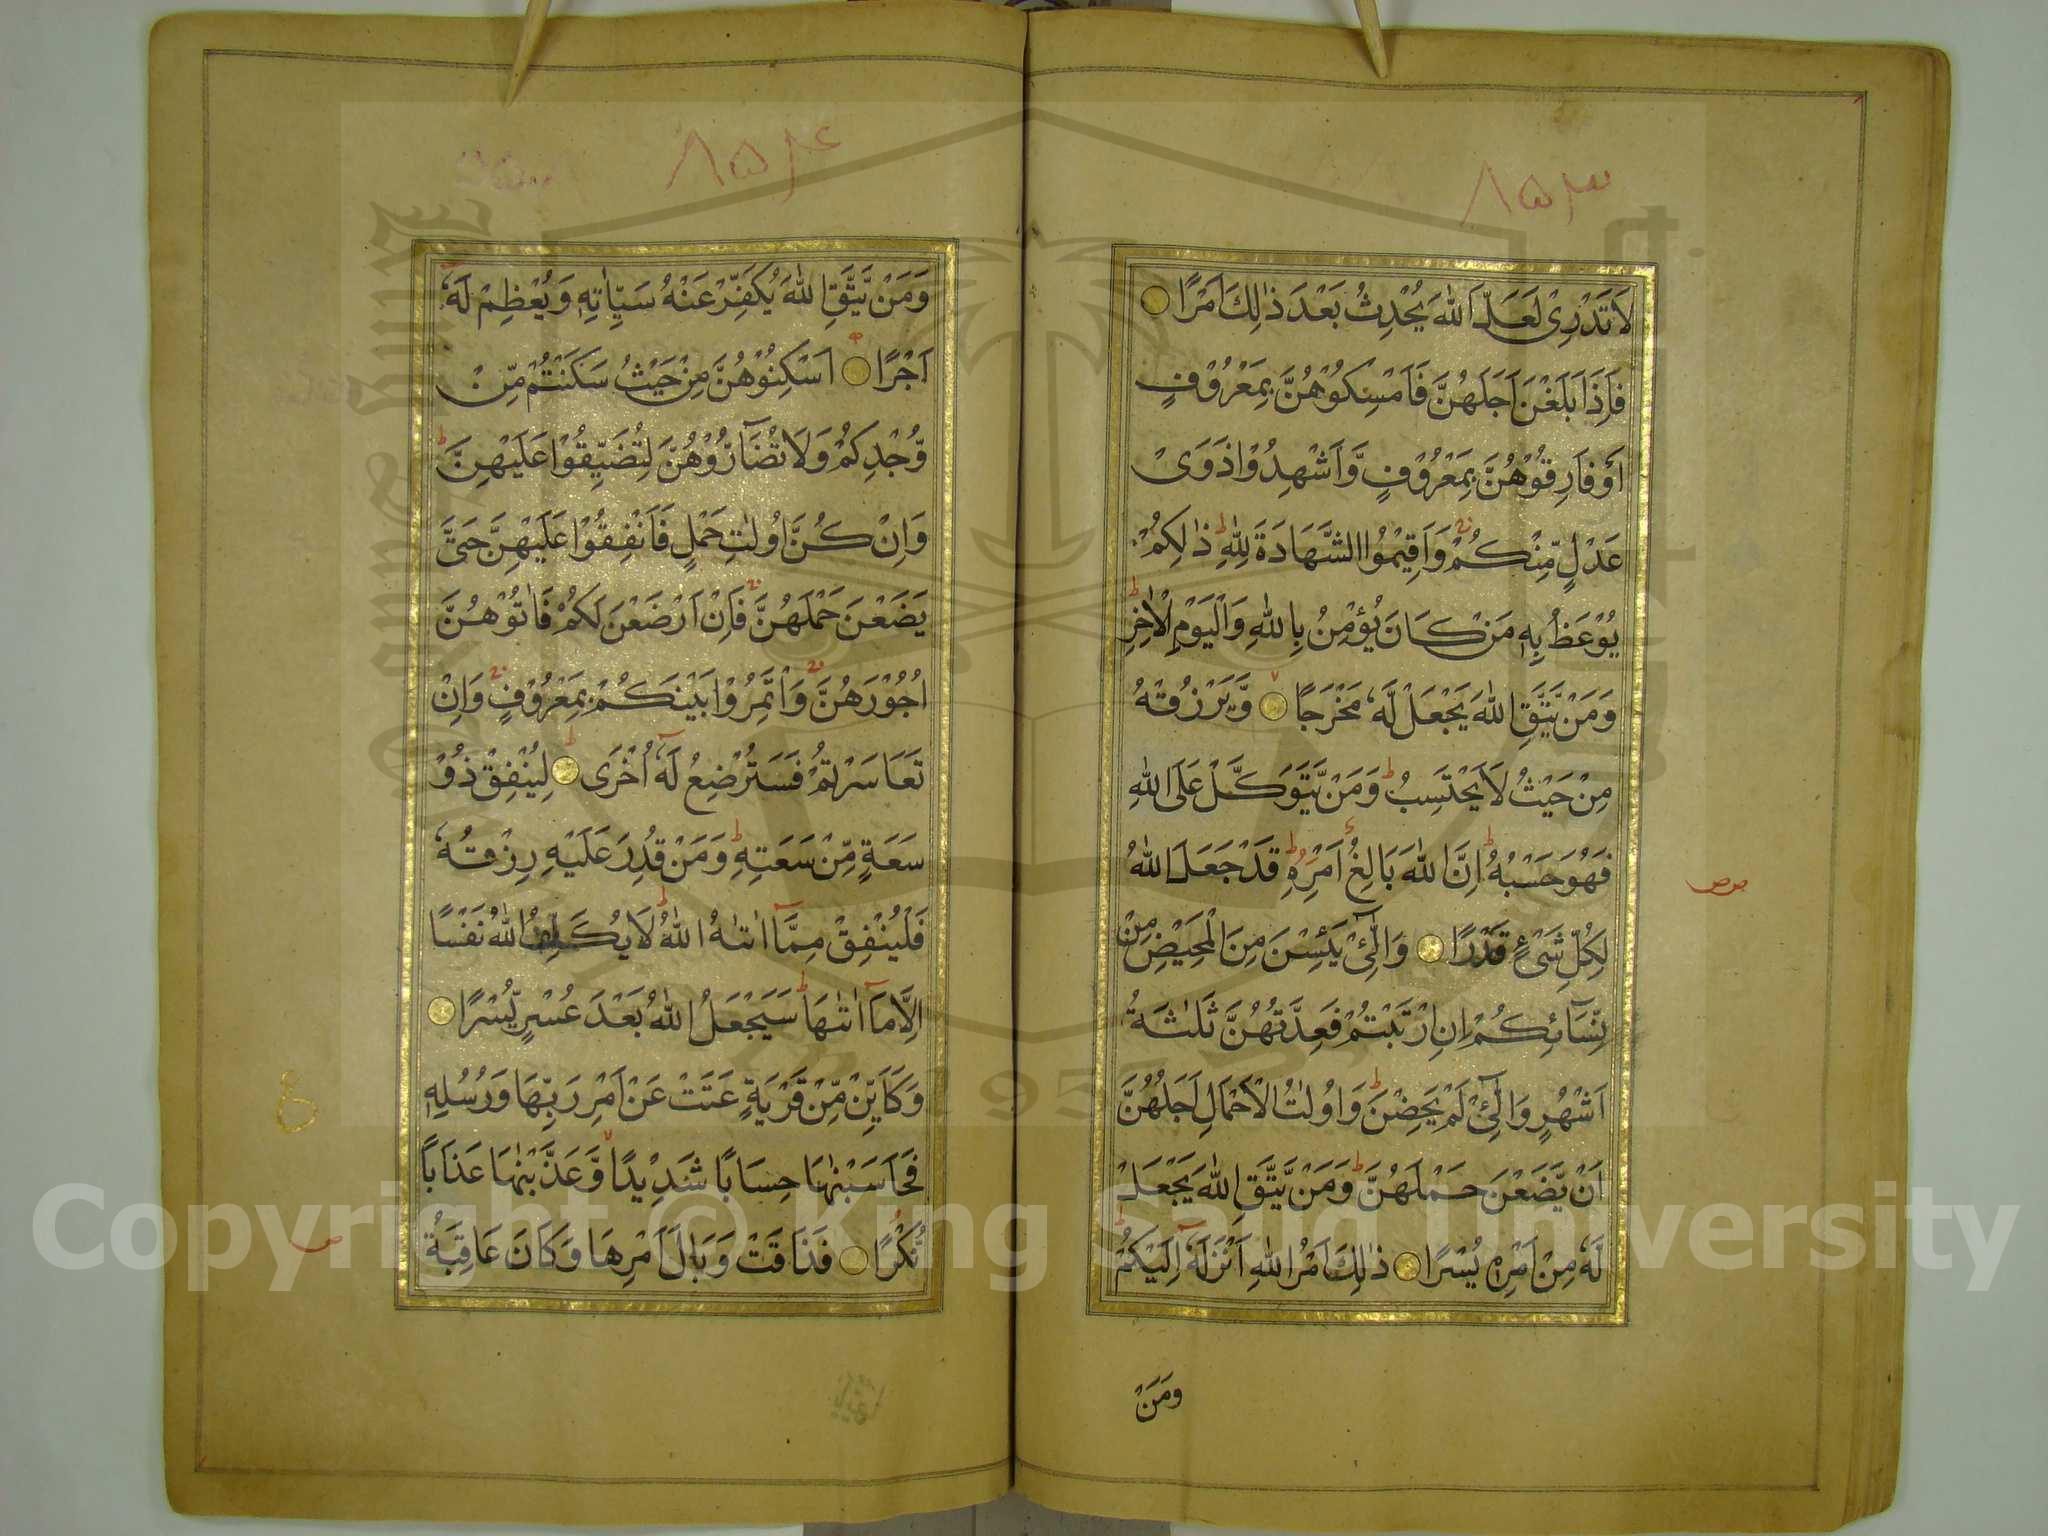 ٨٥٣
لَا تَدْرِىْ لَعَلَّ اللّٰهَ يُحْدِثُ بَعْدَ ذٰلِكَ اَمْرًا
فَاِذَا بَلَغْنَ اَجَلَهُنَّ فَاَمْسِكُوْهُنَّ بِمَعْرُوْفٍ
اَوْ فَارِقُوْهُنَّ بِمَعْرُوْفٍ وَّاَشْهِدُوْا ذَوَىْ
عَدْلٍ مِّنْكُمْ وَاَقِيْمُوا الشَّهَادَةَ لِلّٰهِ ذٰلِكُمْ
يُوْعَظُ بِهٖ مَنْ كَانَ يُؤْمِنُ بِاللّٰهِ وَالْيَوْمِ الْاٰخِرِ
وَمَنْ يَّتَّقِ اللّٰهَ يَجْعَلْ لَّهٗ مَخْرَجًا وَّيَرْزُقْهُ
مِنْ حَيْثُ لَا يَحْتَسِبُ وَمَنْ يَّتَوَكَّلْ عَلَى اللّٰهِ
فَهُوَ حَسْبُهٗ اِنَّ اللّٰهَ بَالِغُ اَمْرِهٖ قَدْ جَعَلَ اللّٰهُ
لِكُلِّ شَىْءٍ قَدْرًا وَالّٰٓئِىْ يَئِسْنَ مِنَ الْمَحِيْضِ مِنْ
نِّسَآئِكُمْ اِنِ ارْتَبْتُمْ فَعِدَّتُهُنَّ ثَلٰثَةُ
اَشْهُرٍ وَالّٰٓئِىْ لَمْ يَحِضْنَ وَاُولٰتُ الْاَحْمَالِ اَجَلُهُنَّ
اَنْ يَّضَعْنَ حَمْلَهُنَّ وَمَنْ يَّتَّقِ اللّٰهَ يَجْعَلْ
لَّهٗ مِنْ اَمْرِهٖ يُسْرًا ذٰلِكَ اَمْرُ اللّٰهِ اَنْزَلَهٗٓ اِلَيْكُمْ
وَمَنْ
٨٥٤
وَمَنْ يَّتَّقِ اللّٰهَ يُكَفِّرْ عَنْهُ سَيِّاٰتِهٖ وَيُعْظِمْ لَهٗٓ
اَجْرًا اَسْكِنُوْهُنَّ مِنْ حَيْثُ سَكَنْتُمْ مِّنْ
وُّجْدِكُمْ وَلَا تُضَآرُّوْهُنَّ لِتُضَيِّقُوْا عَلَيْهِنَّ
وَاِنْ كُنَّ اُولٰتِ حَمْلٍ فَاَنْفِقُوْا عَلَيْهِنَّ حَتّٰى
يَضَعْنَ حَمْلَهُنَّ فَاِنْ اَرْضَعْنَ لَكُمْ فَاٰتُوْهُنَّ
اُجُوْرَهُنَّ وَاْتَمِرُوْا بَيْنَكُمْ بِمَعْرُوْفٍ وَاِنْ
تَعَاسَرْتُمْ فَسَتُرْضِعُ لَهٗٓ اُخْرٰى لِيُنْفِقْ ذُوْ
سَعَةٍ مِّنْ سَعَتِهٖ وَمَنْ قُدِرَ عَلَيْهِ رِزْقُهٗ
فَلْيُنْفِقْ مِمَّآ اٰتٰىهُ اللّٰهُ لَا يُكَلِّفُ اللّٰهُ نَفْسًا
اِلَّا مَآ اٰتٰىهَا سَيَجْعَلُ اللّٰهُ بَعْدَ عُسْرٍ يُّسْرًا
وَكَاَيِّنْ مِّنْ قَرْيَةٍ عَتَتْ عَنْ اَمْرِ رَبِّهَا وَرُسُلِهٖ
فَحَاسَبْنٰهَا حِسَابًا شَدِيْدًا وَّعَذَّبْنٰهَا عَذَابًا
نُّكْرًا فَذَاقَتْ وَبَالَ اَمْرِهَا وَكَانَ عَاقِبَةُ
Copyright © King Saud University